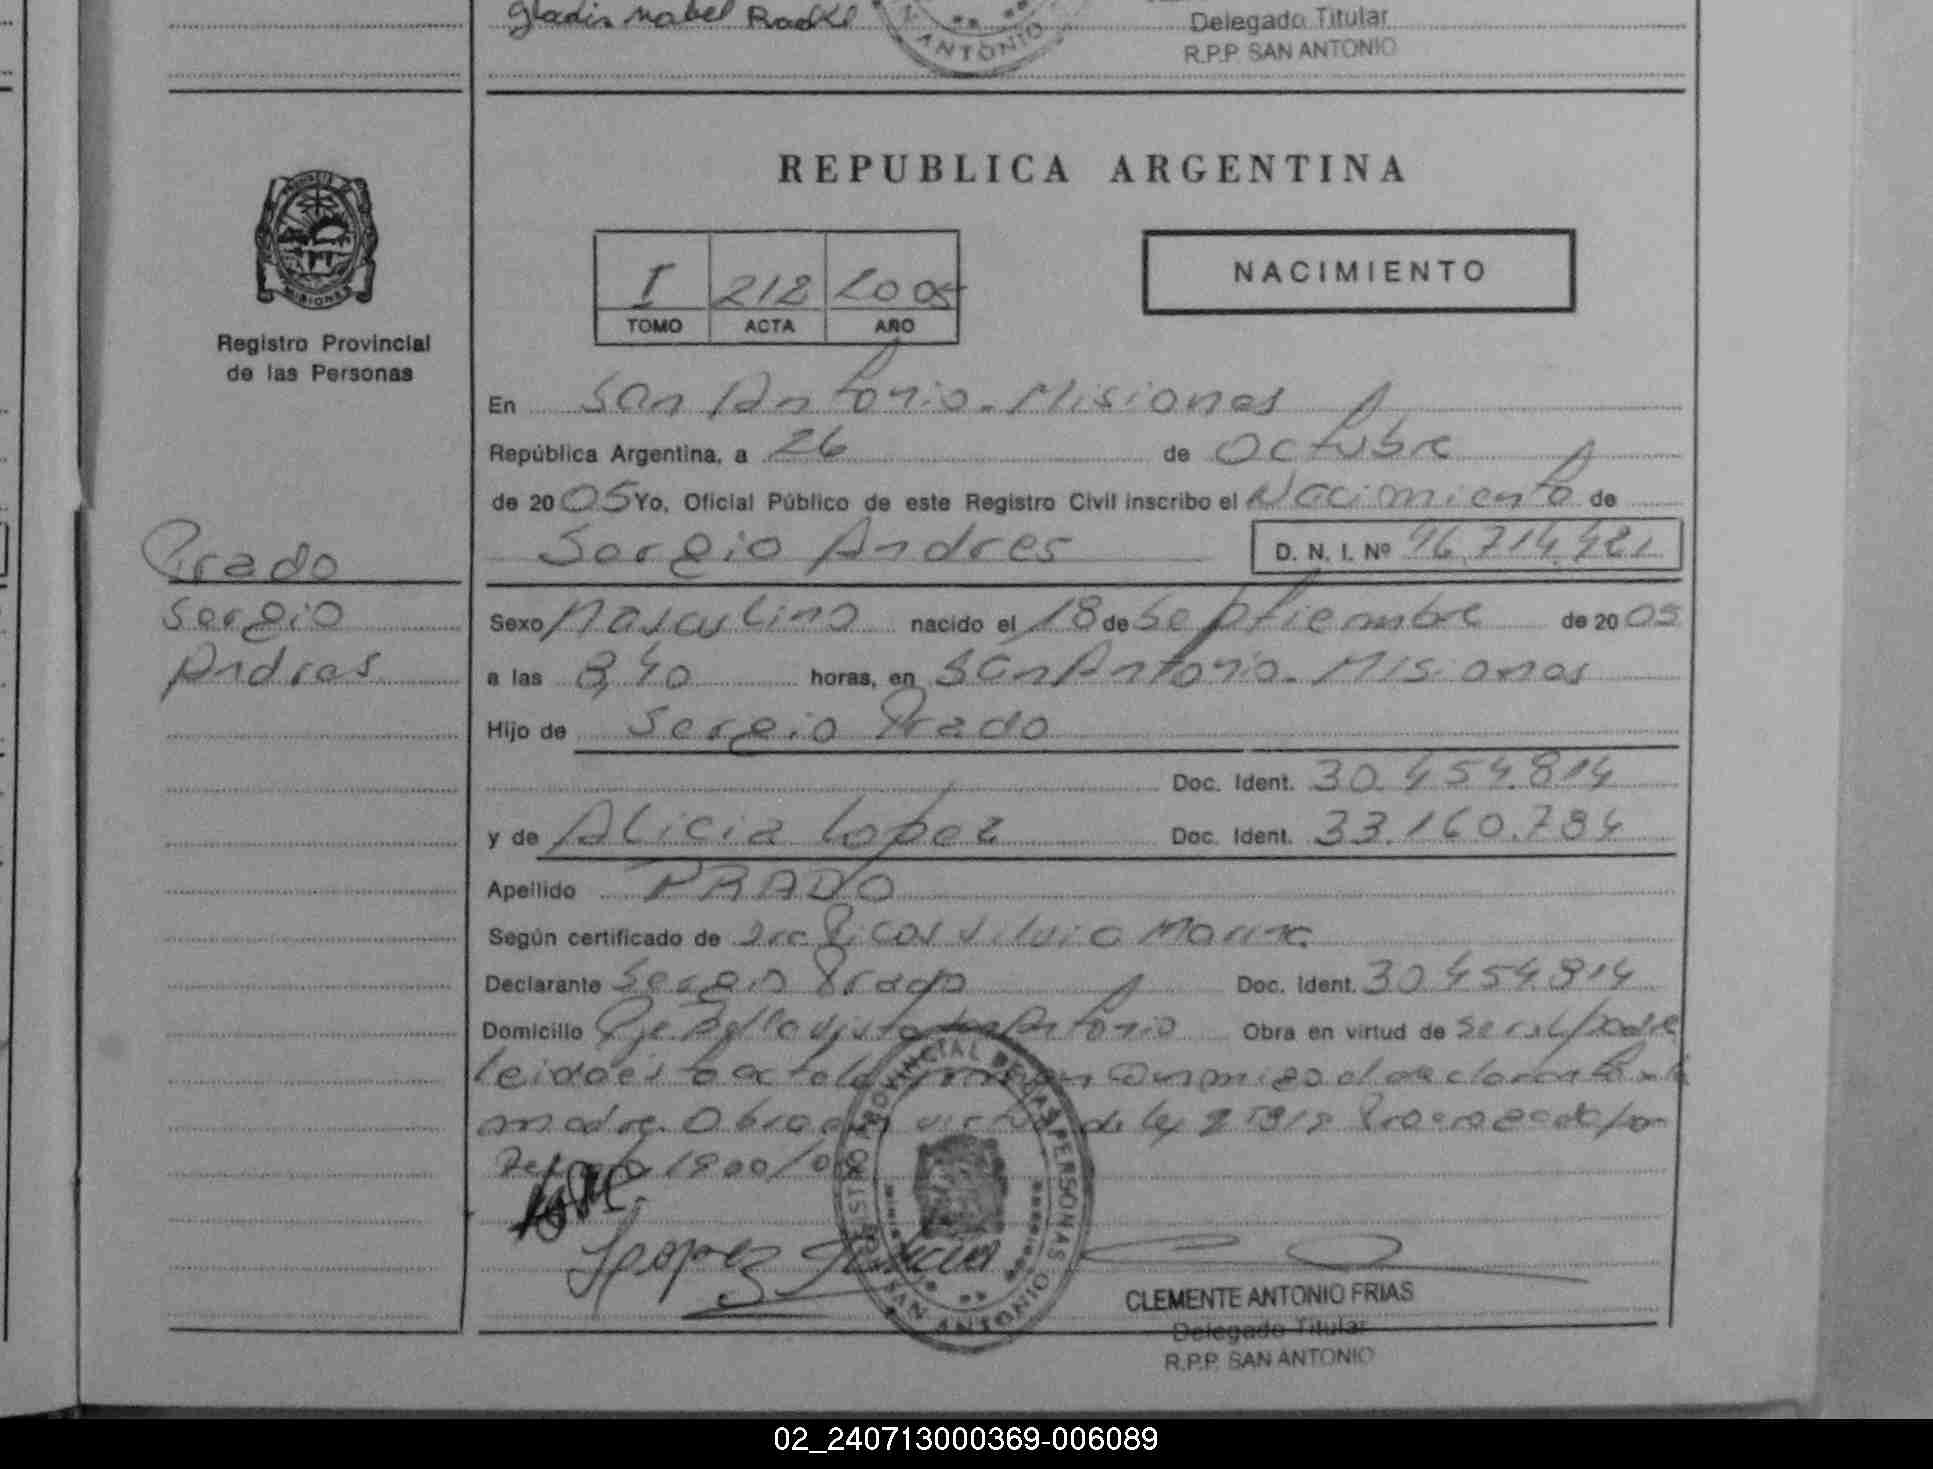 Gladis Mabel
Delegado Titular
ANTONIO
R.P.P. SAN ANTONIO
REPUBLICA ARGENTINA
PROVINCIA DE
MISIONES
I 212 2005
TOMO ACTA AÑO
NACIMIENTO
Registro Provincial
de las Personas
En San Antonio - Misiones
República Argentina, a 26 de Octubre
de 2005 Yo, Oficial Público de este Registro Civil inscribo el Nacimiento de
Prado
Sergio Andres D. N. I. Nº 46.714.421
Sergio
Andres
Sexo Masculino nacido el 18 de Septiembre de 2005
a las 8,40 horas, en San Antonio - Misiones
Hijo de Sergio Prado
Doc. Ident. 30.454.814
y de Alicia Lopez Doc. Ident. 33.160.784
Apellido PRADO
Según certificado de
Declarante Sergio Prado Doc. Ident. 30.454.814
Domicilio Pje Bella Vista San Antonio Obra en virtud de ser el padre
leida esta acta la firman conmigo el declarante y la
madre. Obrando en virtud de ley Prorrogada por
REGISTRO PROVINCIAL DE LAS PERSONAS
SAN ANTONIO
Lopez Alicia
CLEMENTE ANTONIO FRIAS
Delegado Titular
R.P.P. SAN ANTONIO
02_240713000369-006089